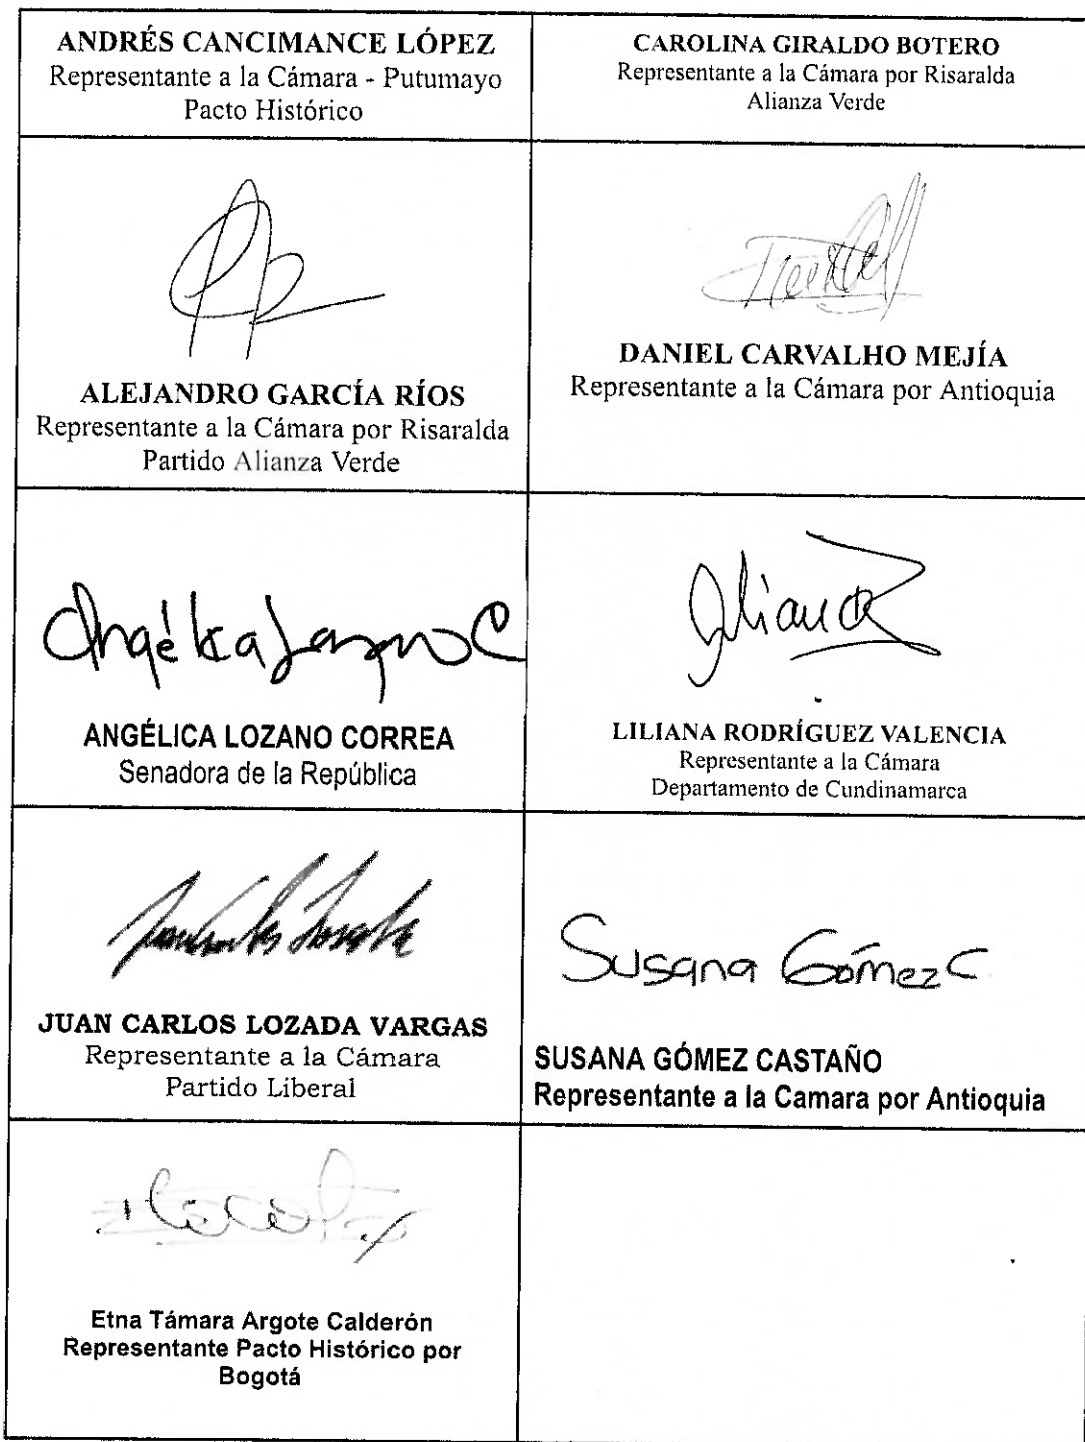 ANDRÉS CANCIMANCE LÓPEZ
Representante a la Cámara - Putumayo
Pacto Histórico
CAROLINA GIRALDO BOTERO
Representante a la Cámara por Risaralda
Alianza Verde
ALEJANDRO GARCÍA RÍOS
Representante a la Cámara por Risaralda
Partido Alianza Verde
DANIEL CARVALHO MEJÍA
Representante a la Cámara por Antioquia
Angélica Lozano C
ANGÉLICA LOZANO CORREA
Senadora de la República
LILIANA RODRÍGUEZ VALENCIA
Representante a la Cámara
Departamento de Cundinamarca
JUAN CARLOS LOZADA VARGAS
Representante a la Cámara
Partido Liberal
Susana Gómez C
SUSANA GÓMEZ CASTAÑO
Representante a la Camara por Antioquia
Etna Támara Argote Calderón
Representante Pacto Histórico por
Bogotá